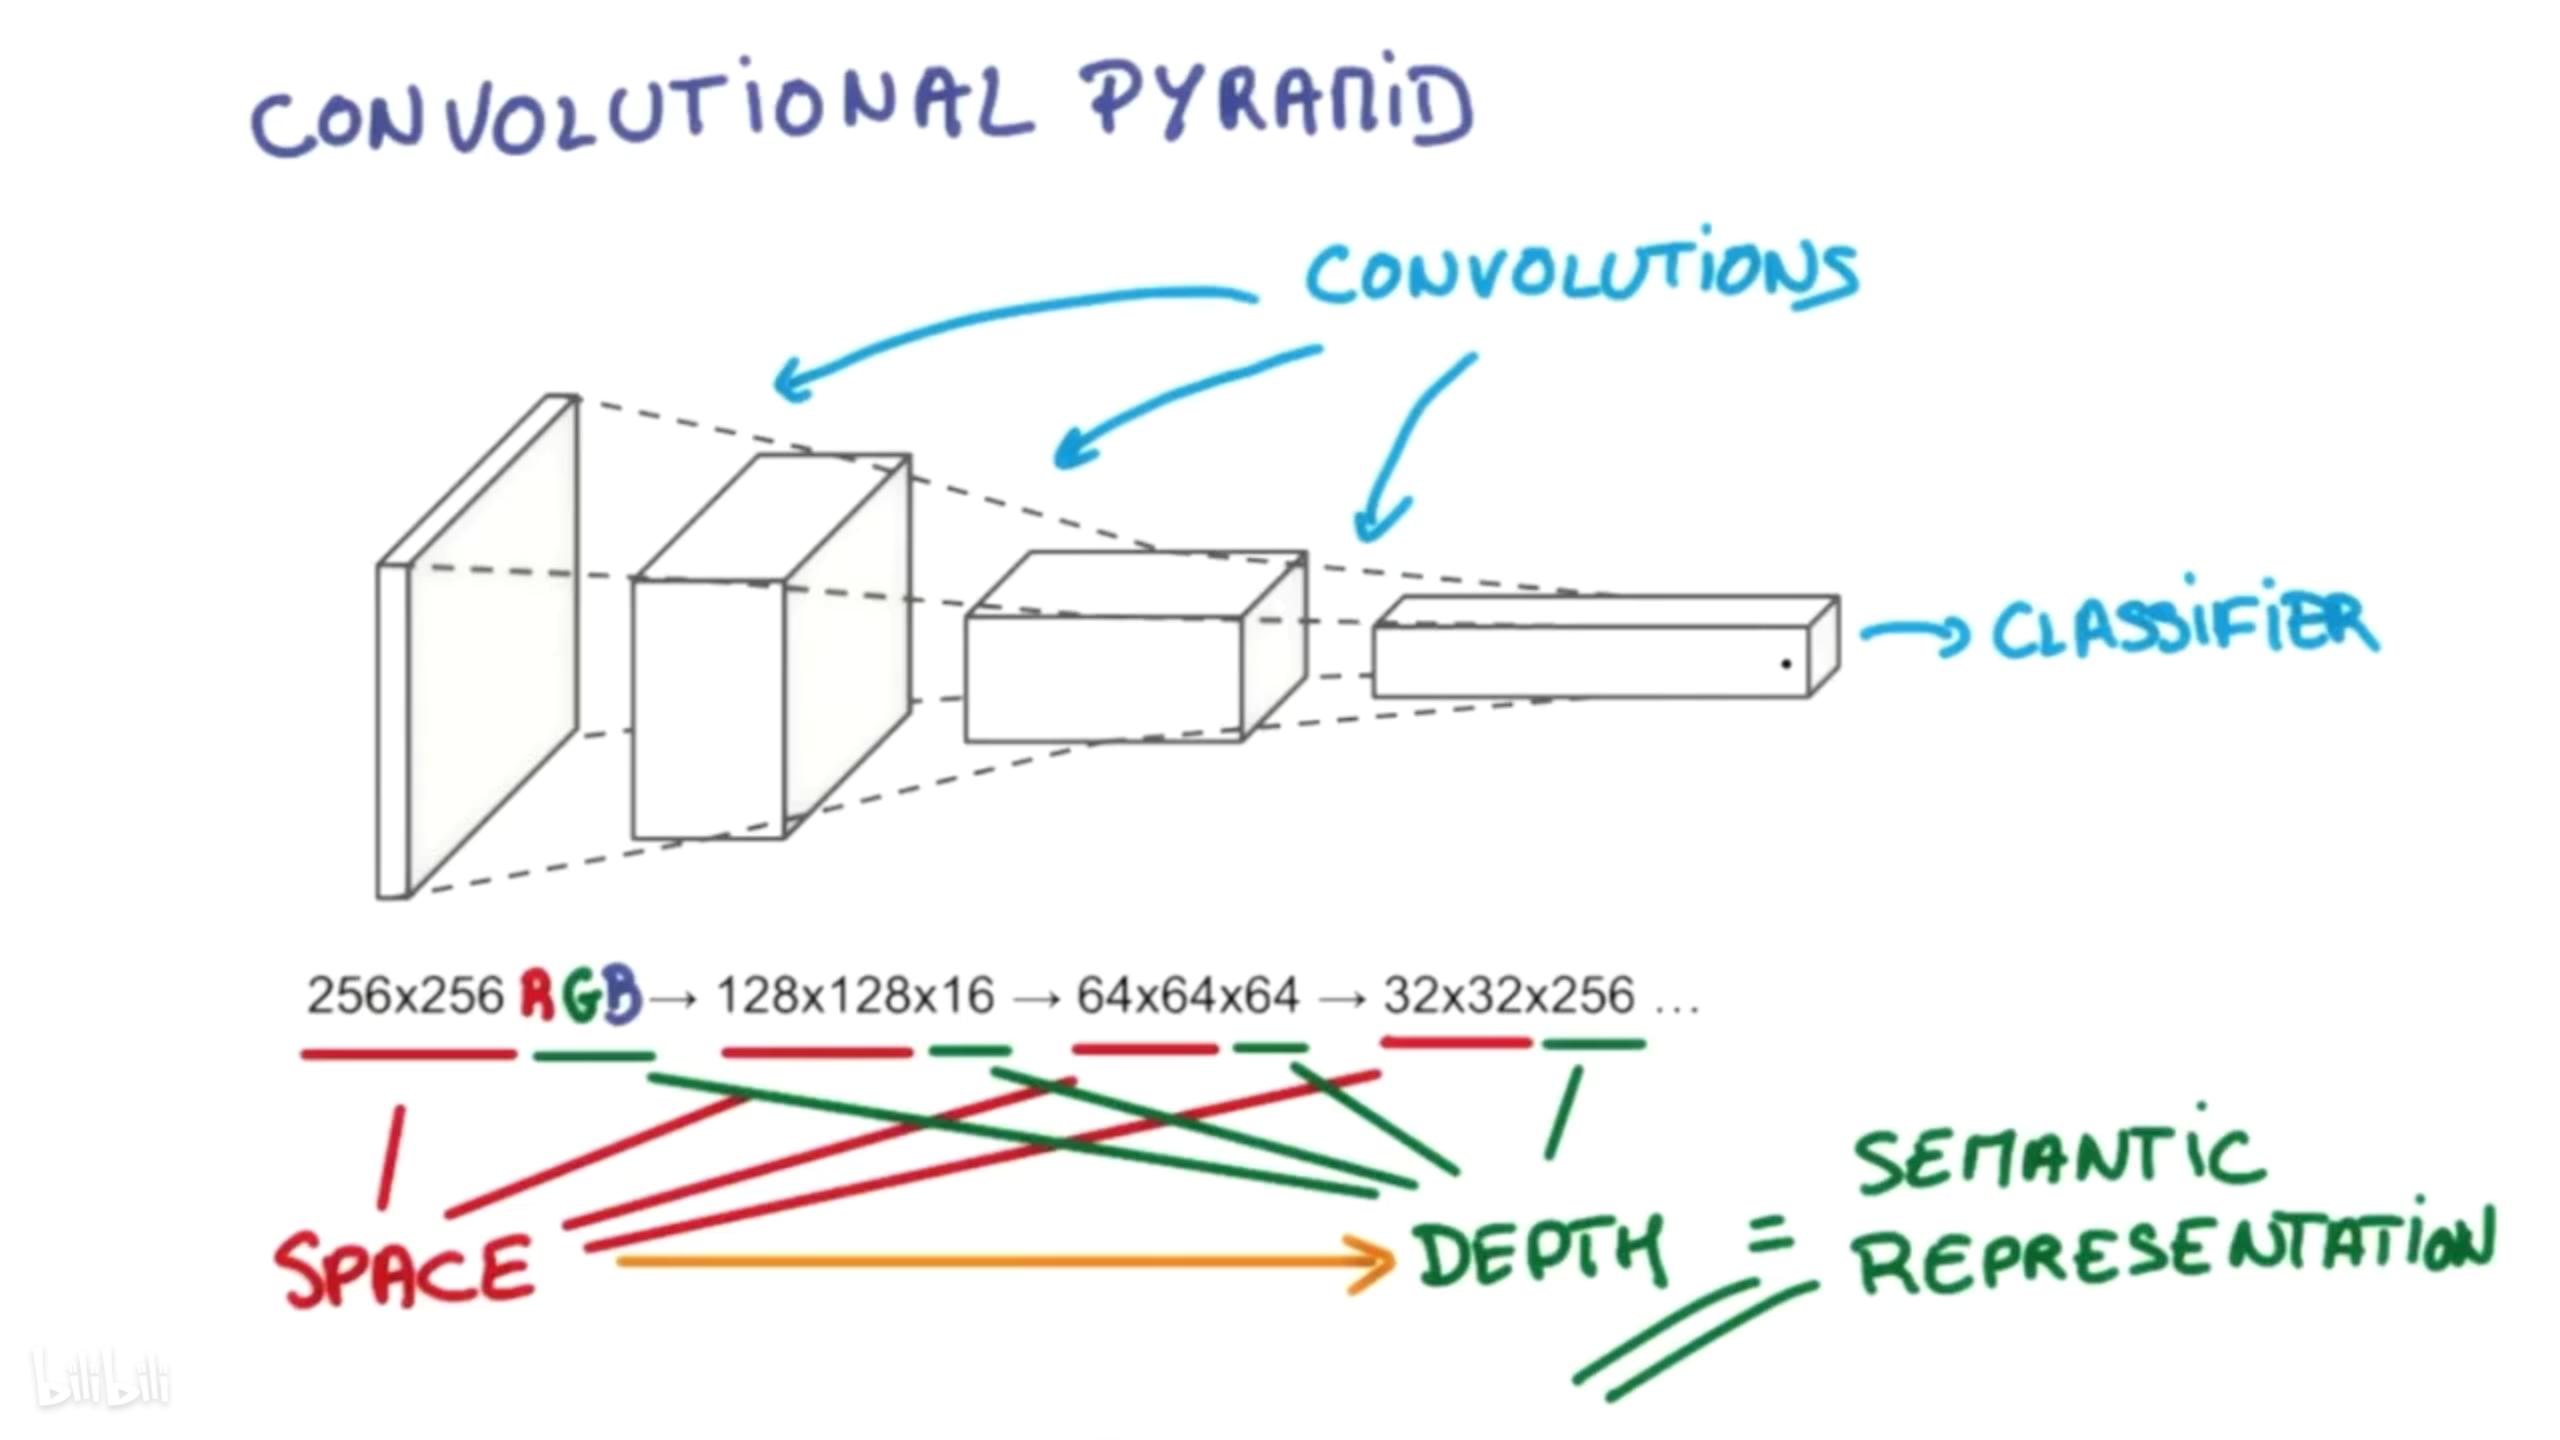 CONVOLUTIONAL PYRAMID
CONVOLUTIONS
CLASSIFIER
256x256 RGB → 128x128x16 → 64x64x64 → 32x32x256 ...
SPACE → DEPTH = SEMANTIC
REPRESENTATION
bilibili